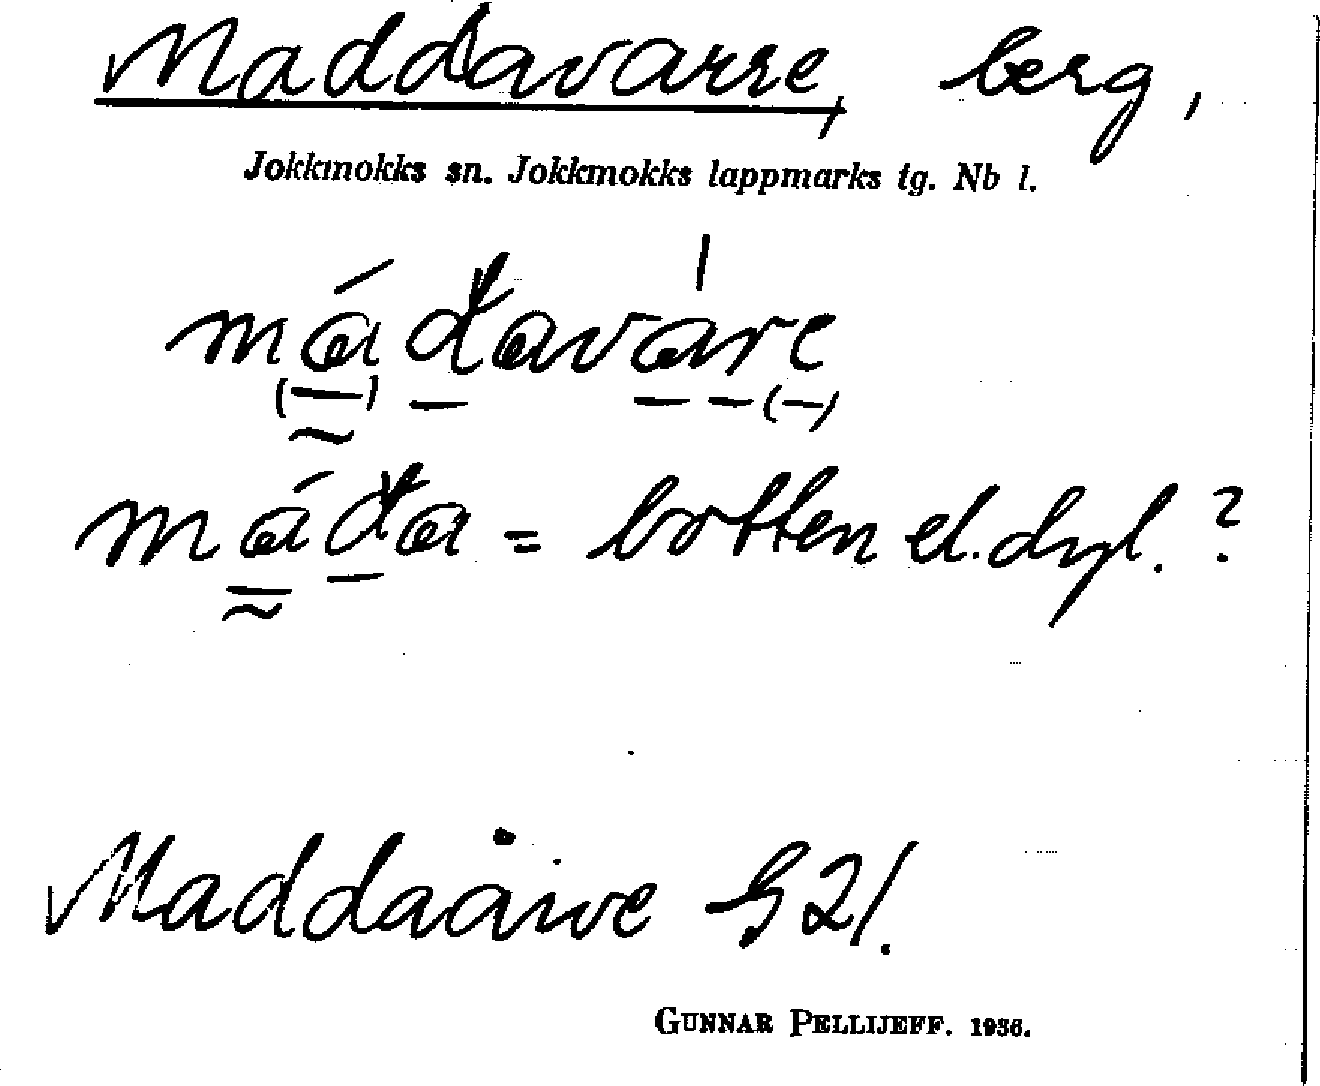 Maddavarre, berg,
Jokkmokks sn. Jokkmokks lappmarks tg. Nb l.
máđavàre
máđa = botten el. dyl. ?
Maddaåive G 21.
GUNNAR PELLIJEFF. 1936.